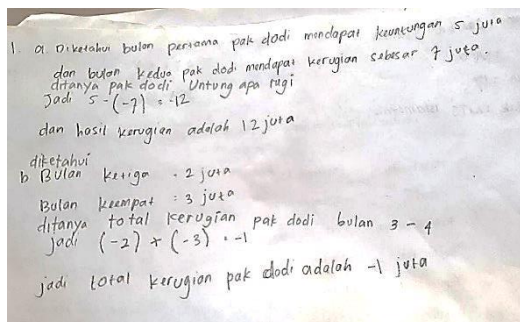 1. a. Diketahui bulan pertama pak dodi mendapat keuntungan 5 juta
dan bulan kedua pak dodi mendapat kerugian sebesar 7 juta.
ditanya pak dodi Untung apa rugi
Jadi 5 - (-7) = -12
dan hasil kerugian adalah 12 juta
diketahui
b Bulan ketiga : 2 juta
Bulan keempat : 3 juta
ditanya total kerugian pak dodi bulan 3 - 4
Jadi (-2) + (-3) = -1
jadi total kerugian pak dodi adalah -1 juta